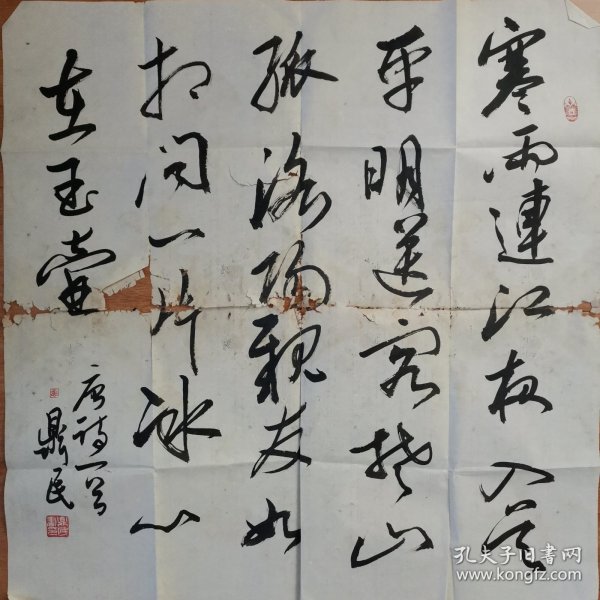 寒雨連江夜入吳
平明送客楚山
孤洛陽親友如
相問一片冰心
在玉壺
唐詩一首
鼎民
孔夫子旧書网
www.kongfz.com